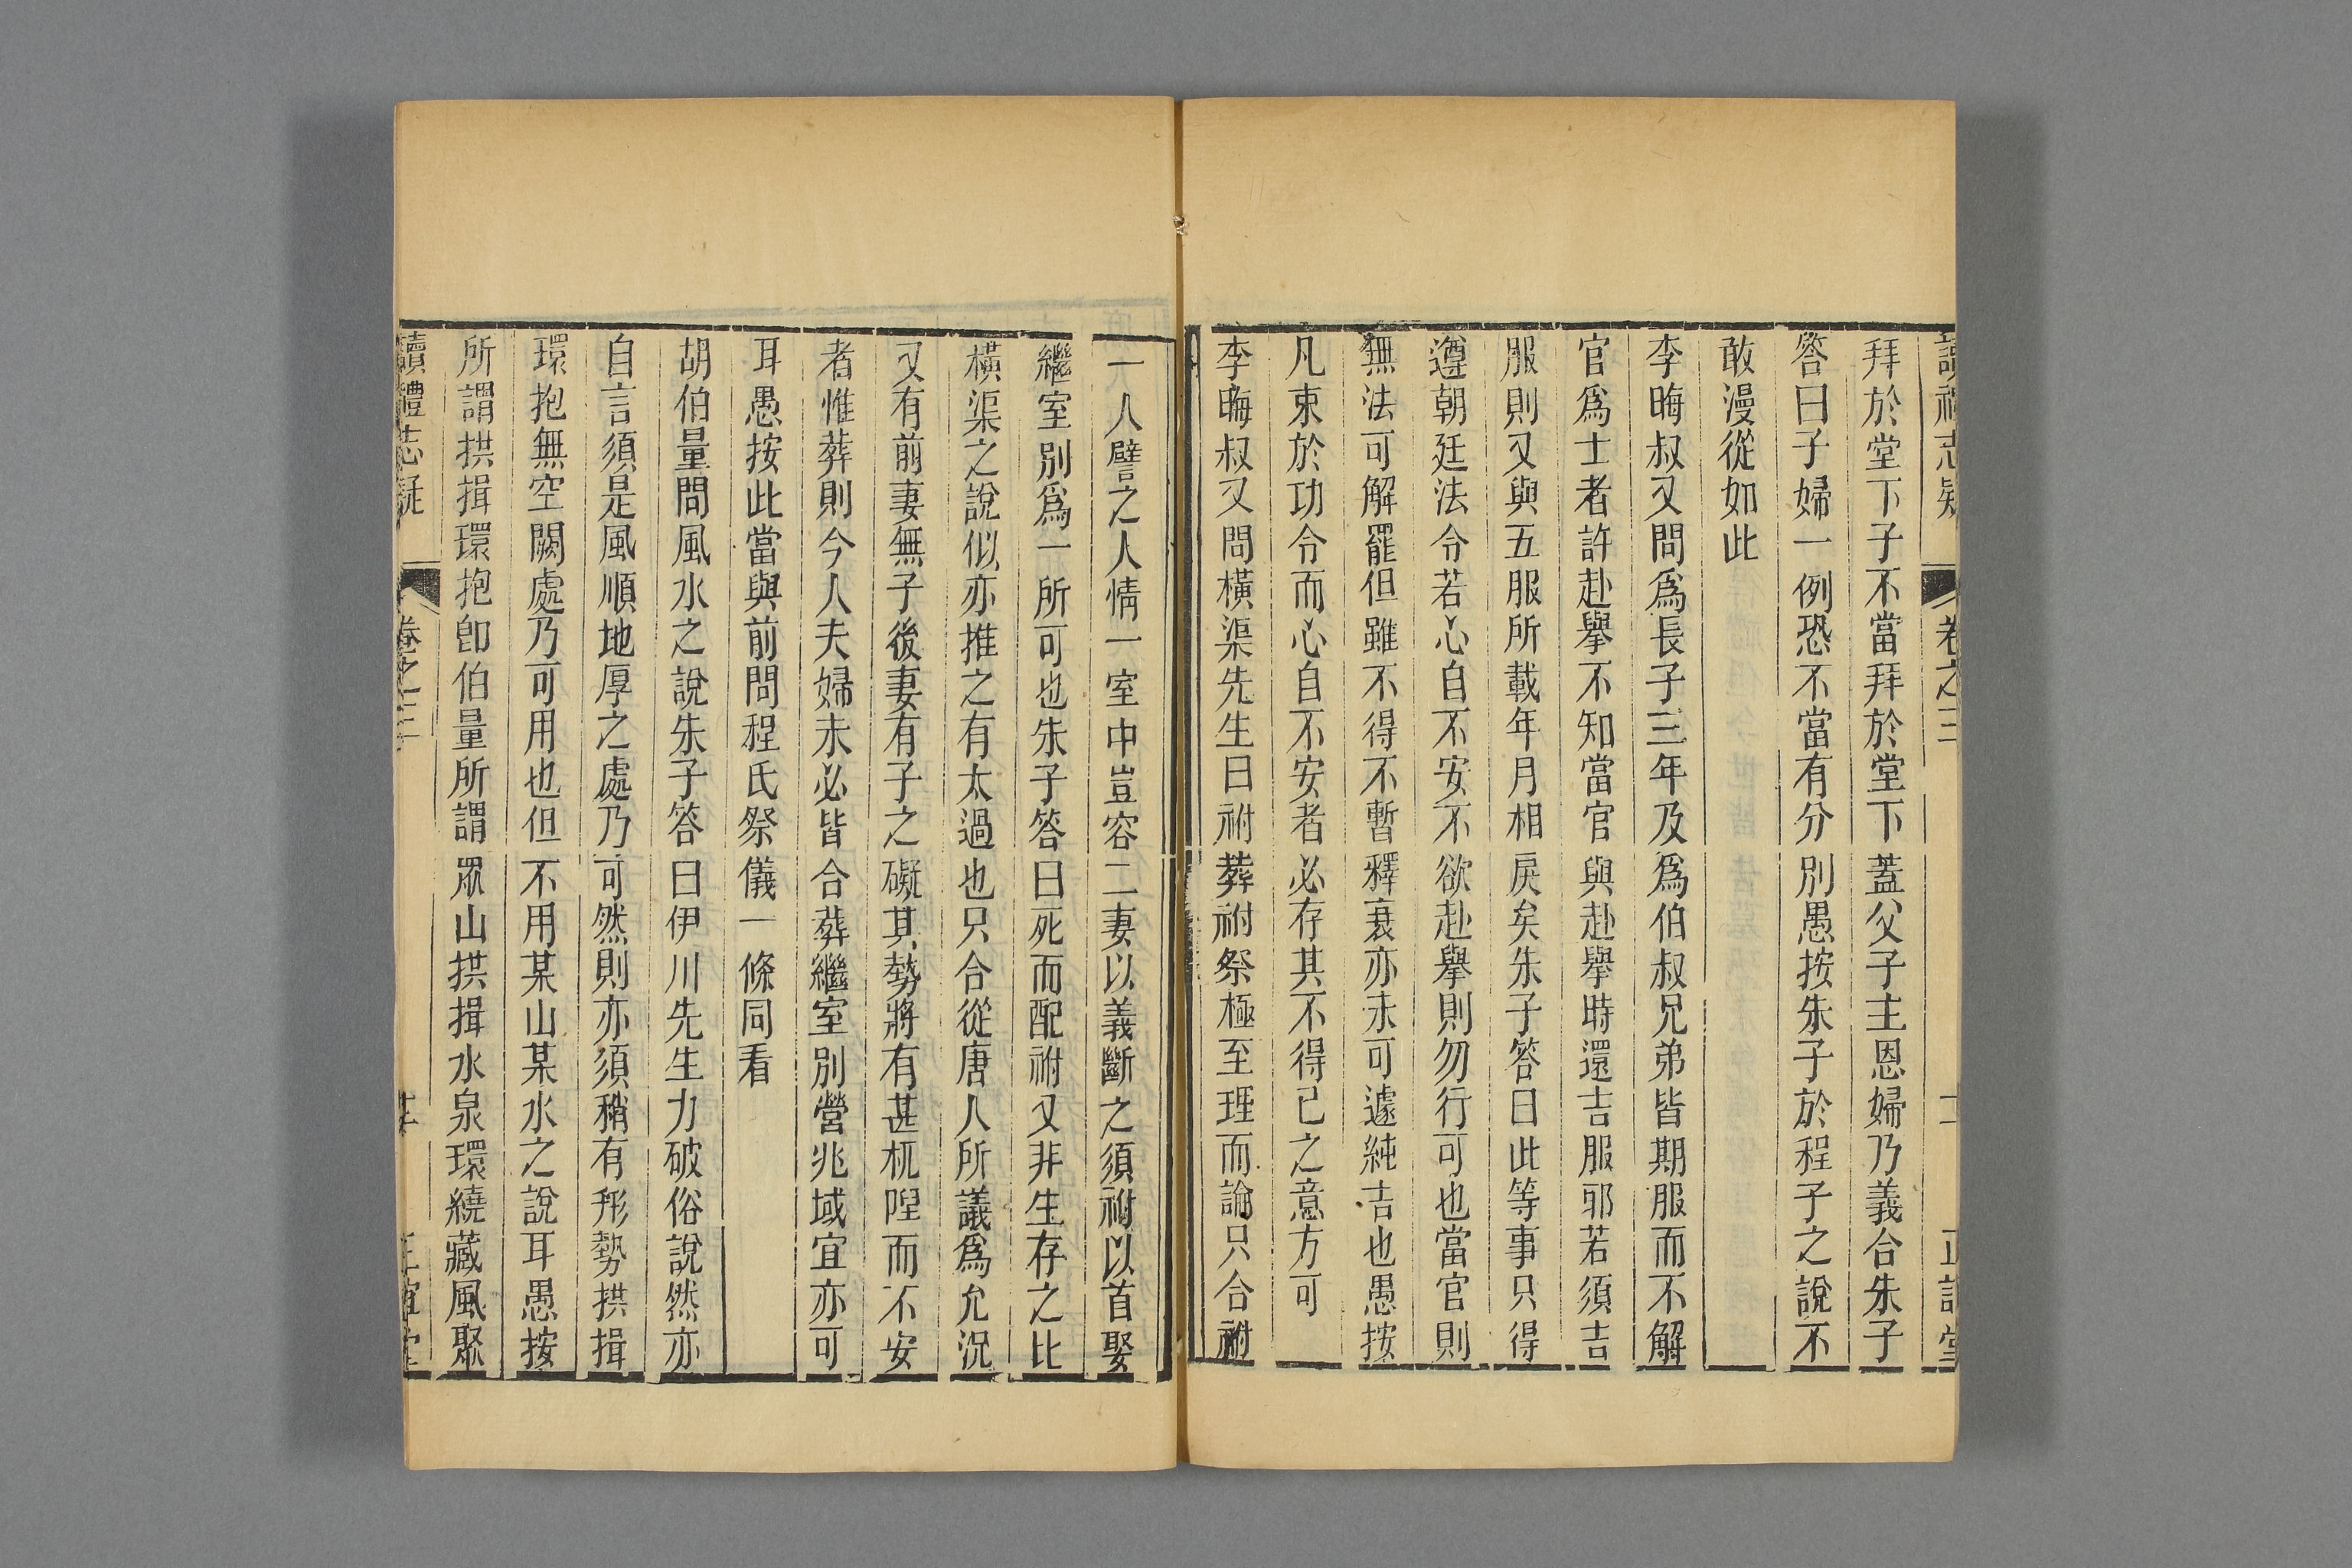 讀禮志疑 卷之三 正誼堂
拜於堂下子不當拜於堂下蓋父子主恩婦乃義合朱子
答曰子婦一例恐不當有分別愚按朱子於程子之說不
敢漫從如此
李晦叔又問爲長子三年及爲伯叔兄弟皆期服而不解
官爲士者許赴舉不知當官與赴舉時還吉服邪若須吉
服則又與五服所載年月相戾矣朱子答曰此等事只得
遵朝廷法令若心自不安不欲赴舉則勿行可也當官則
無法可解罷但雖不得不暫釋衰亦未可遽純吉也愚按
凡束於功令而心自不安者必存其不得已之意方可
李晦叔又問橫渠先生曰祔葬祔祭極至理而論只合祔
一人譬之人情一室中豈容二妻以義斷之須祔以首娶
繼室別爲一所可也朱子答曰死而配祔又非生存之比
橫渠之說似亦推之有太過也只合從唐人所議爲允況
又有前妻無子後妻有子之礙其勢將有甚杌隉而不安
者惟葬則今人夫婦未必皆合葬繼室別營兆域宜亦可
耳愚按此當與前問程氏祭儀一條同看
胡伯量問風水之說朱子答曰伊川先生力破俗說然亦
自言須是風順地厚之處乃可然則亦須稍有形勢拱揖
環抱無空闕處乃可用也但不用某山某水之說耳愚按
所謂拱揖環抱卽伯量所謂眾山拱揖水泉環繞藏風聚
讀禮志疑 卷之三 正誼堂